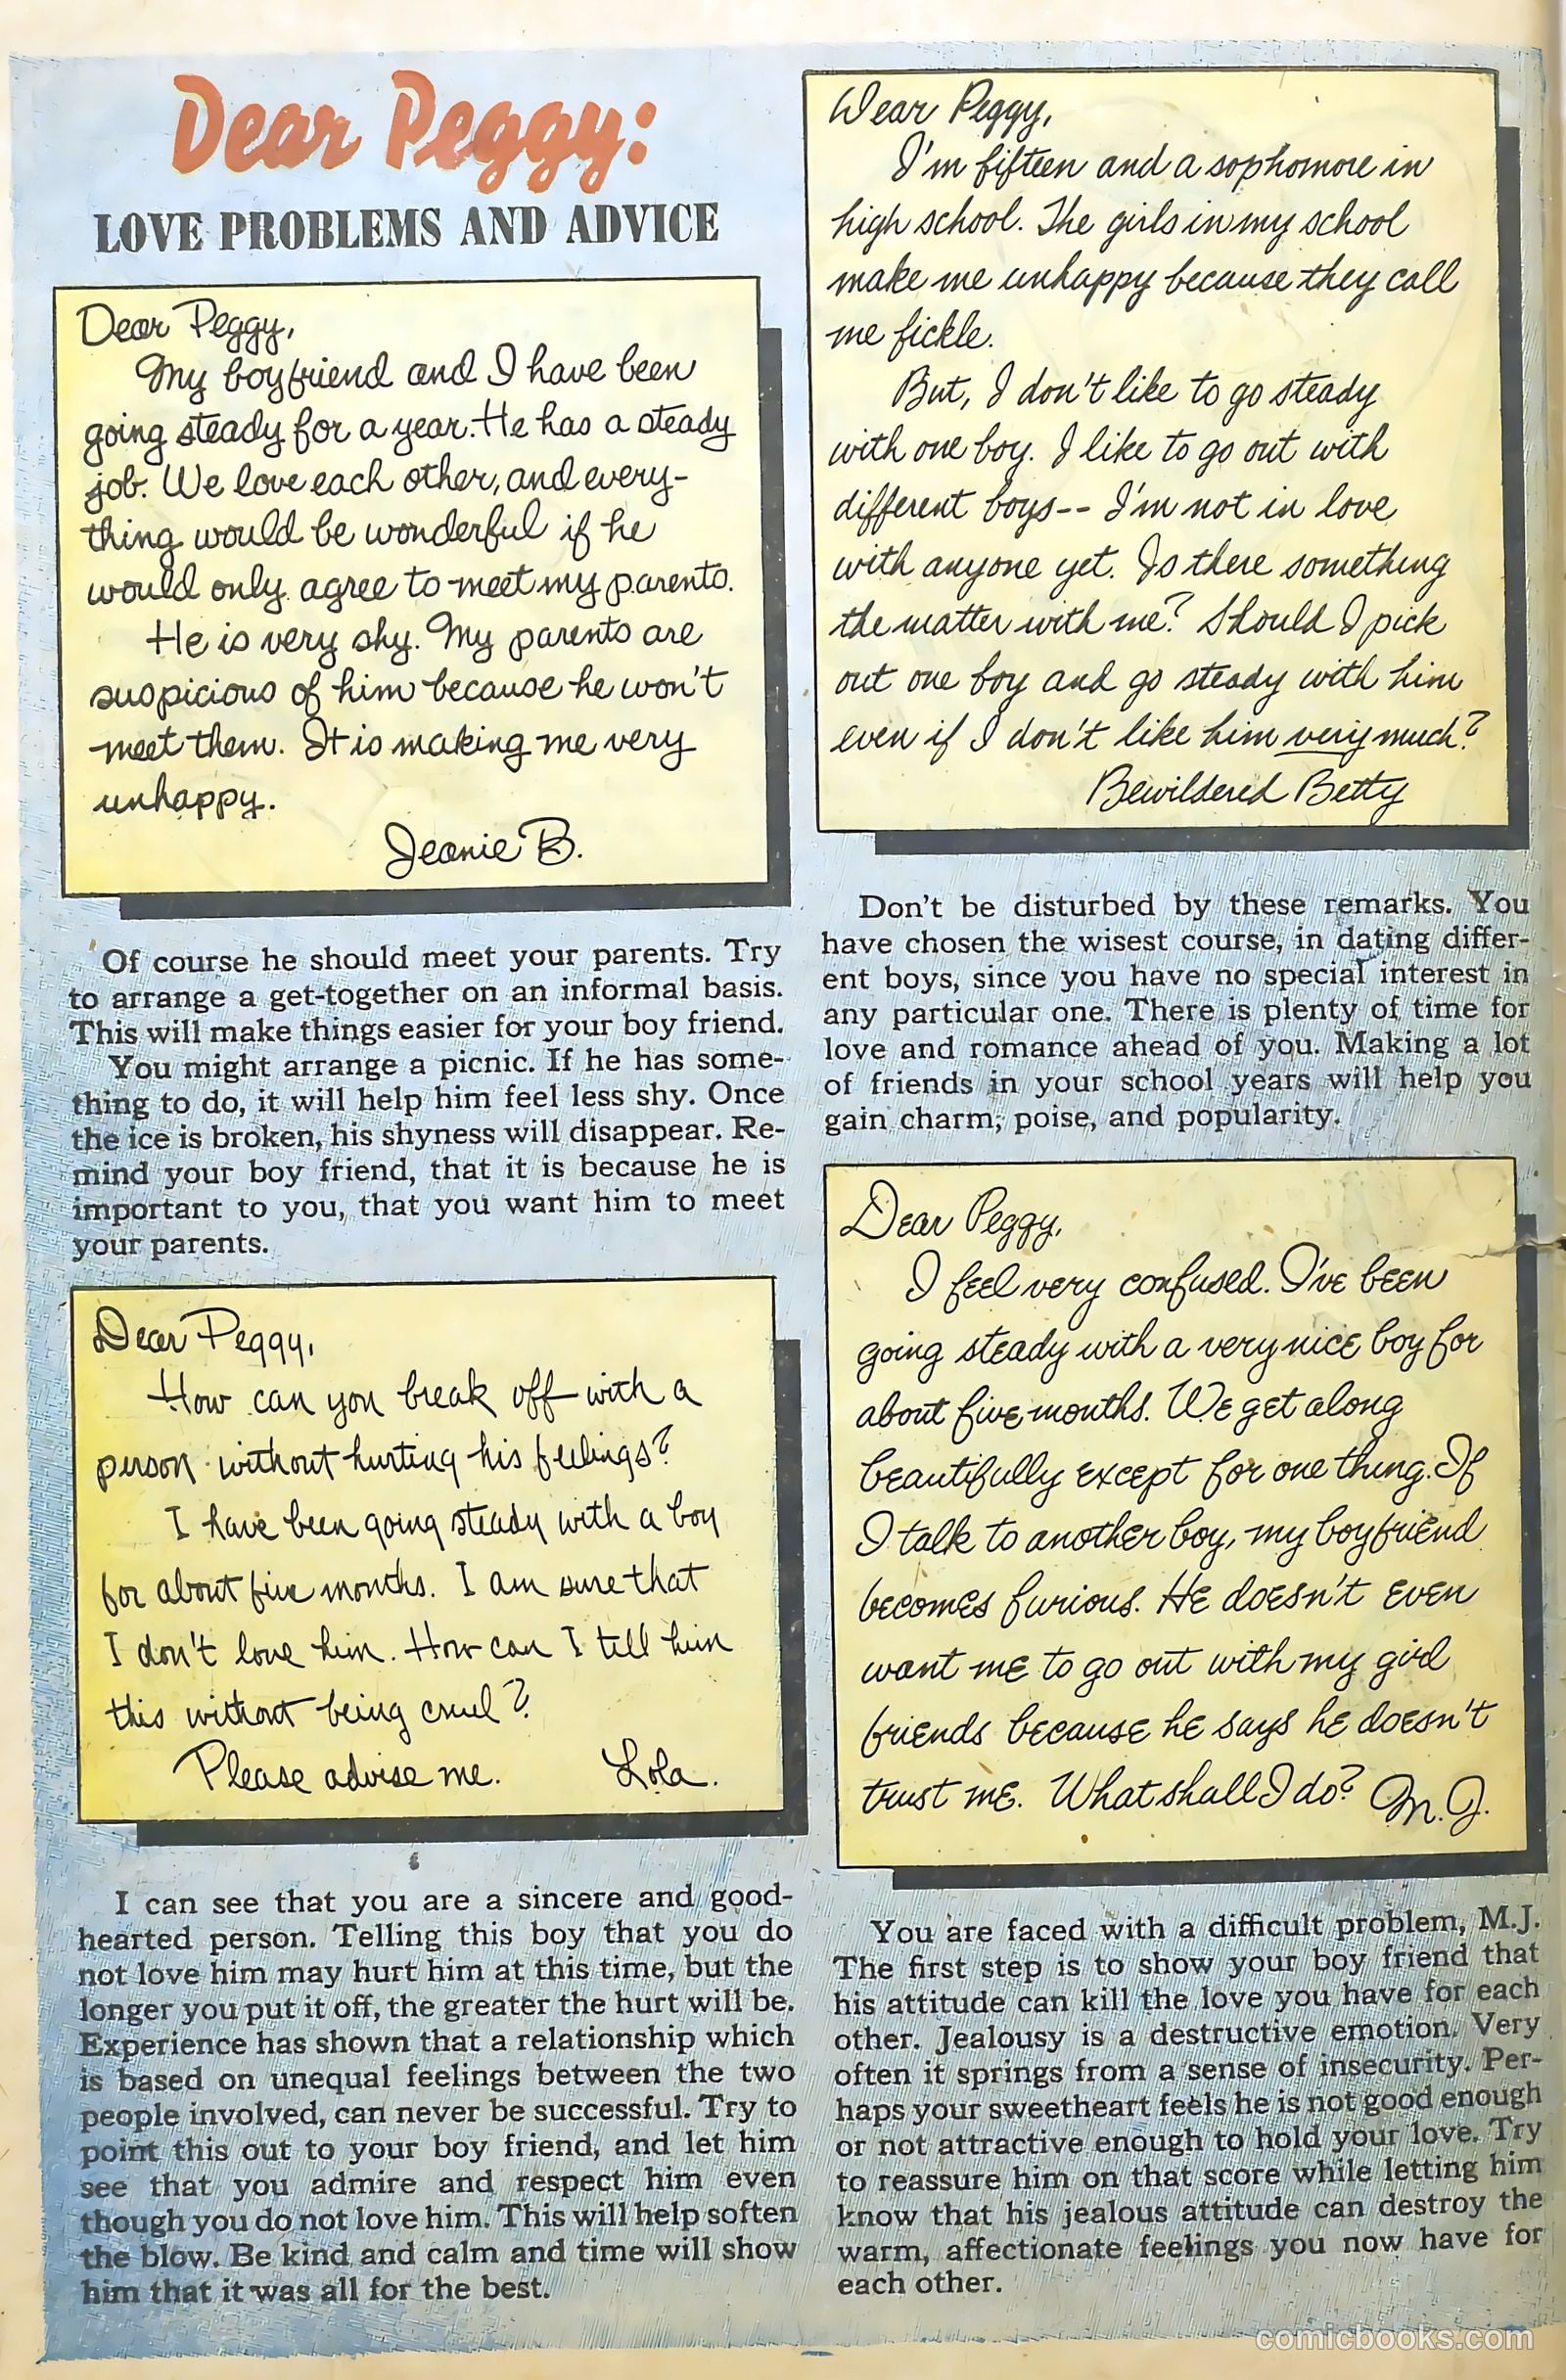 Dear Peggy:
LOVE PROBLEMS AND ADVICE
Dear Peggy,
My boyfriend and I have been
going steady for a year. He has a steady
job. We love each other, and every-
thing would be wonderful if he
would only agree to meet my parents.
He is very shy. My parents are
suspicious of him because he won't
meet them. It is making me very
unhappy.
Jeanie B.
Of course he should meet your parents. Try
to arrange a get-together on an informal basis.
This will make things easier for your boy friend.
You might arrange a picnic. If he has some-
thing to do, it will help him feel less shy. Once
the ice is broken, his shyness will disappear. Re-
mind your boy friend, that it is because he is
important to you, that you want him to meet
your parents.
Dear Peggy,
How can you break off with a
person without hurting his feelings?
I have been going steady with a boy
for about five months. I am sure that
I don't love him. How can I tell him
this without being cruel?
Please advise me. Lola.
I can see that you are a sincere and good-
hearted person. Telling this boy that you do
not love him may hurt him at this time, but the
longer you put it off, the greater the hurt will be.
Experience has shown that a relationship which
is based on unequal feelings between the two
people involved, can never be successful. Try to
point this out to your boy friend, and let him
see that you admire and respect him even
though you do not love him. This will help soften
the blow. Be kind and calm and time will show
him that it was all for the best.
Dear Peggy,
I'm fifteen and a sophomore in
high school. The girls in my school
make me unhappy because they call
me fickle.
But, I don't like to go steady
with one boy. I like to go out with
different boys-- I'm not in love
with anyone yet. Is there something
the matter with me? Should I pick
out one boy and go steady with him
even if I don't like him very much?
Bewildered Betty
Don't be disturbed by these remarks. You
have chosen the wisest course, in dating differ-
ent boys, since you have no special interest in
any particular one. There is plenty of time for
love and romance ahead of you. Making a lot
of friends in your school years will help you
gain charm, poise, and popularity.
Dear Peggy,
I feel very confused. I've been
going steady with a very nice boy for
about five months. We get along
beautifully except for one thing. If
I talk to another boy, my boyfriend
becomes furious. He doesn't even
want me to go out with my girl
friends because he says he doesn't
trust me. What shall I do? M.J.
You are faced with a difficult problem, M.J.
The first step is to show your boy friend that
his attitude can kill the love you have for each
other. Jealousy is a destructive emotion. Very
often it springs from a sense of insecurity. Per-
haps your sweetheart feels he is not good enough
or not attractive enough to hold your love. Try
to reassure him on that score while letting him
know that his jealous attitude can destroy the
warm, affectionate feelings you now have for
each other.
comicbooks.com